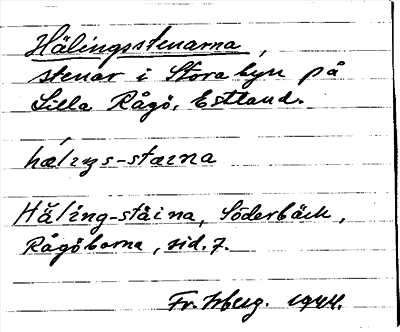 Hälingsstenarna,
stenar i Stora byn på
Lilla Rågö, Estland.
hǽlıŋs-stæına
Hǎling-stǎina, Söderbäck,
Rågöborna, sid. 7.
Fr. Wberg. 1944.